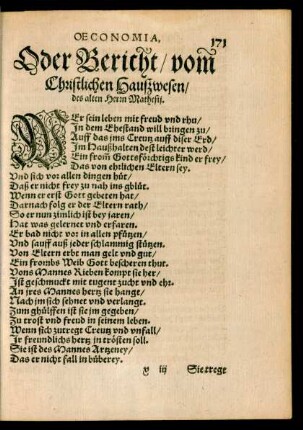 OECONOMIA,
171
Oder Bericht/ vom
Christlichen Haußwesen/
des alten Herrn Mathesij.
WEr sein leben mit freud vnd rhu/
In dem Ehestand will bringen zu/
Auff das jms Creutz auff diser Erd/
Im Haußhalten dest leichter werd/
Ein from Gottsförchtigs kind er frey/
Das von ehrlichen Eltern sey.
Vnd sich vor allen dingen hüt/
Daß er nicht frey zu nah ins gblüt.
Wenn er erst Gott gebeten hat/
Darnach folg er der Eltern rath/
So er nun zimlich ist bey jaren/
Hat was gelernet vnd erfaren.
Er bad nicht vor in allen pfützen/
Vnd sauff auß jeder schlammig stützen.
Von Eltern erbt man gelt vnd gut/
Ein frombs Weib Gott bescheren thut.
Vons Mannes Rieben kompt sie her/
Ist geschmuckt mit tugent zucht vnd ehr.
An jres Mannes hertz sie hange/
Nach jm sich sehnet vnd verlangt.
Zum ghülffen ist sie jm gegeben/
Zu trost vnd freud in seinem leben.
Wenn sich zutregt Creutz vnd vnfall/
Ir freundlichs hertz in trösten soll.
Sie ist des Mannes Artzeney/
Das er nicht fall in büberey.
y iij Sie trege